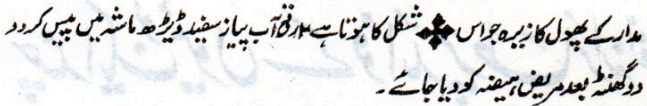 مدار کے پھول کا زیرہ جو اس شکل کا ہوتا ہے ۲ رتی آب پیاز سفید ڈیڑھ ماشہ میں پیس کر دو
دو گھنٹہ بعد مریض ہیضہ کو دیا جائے۔